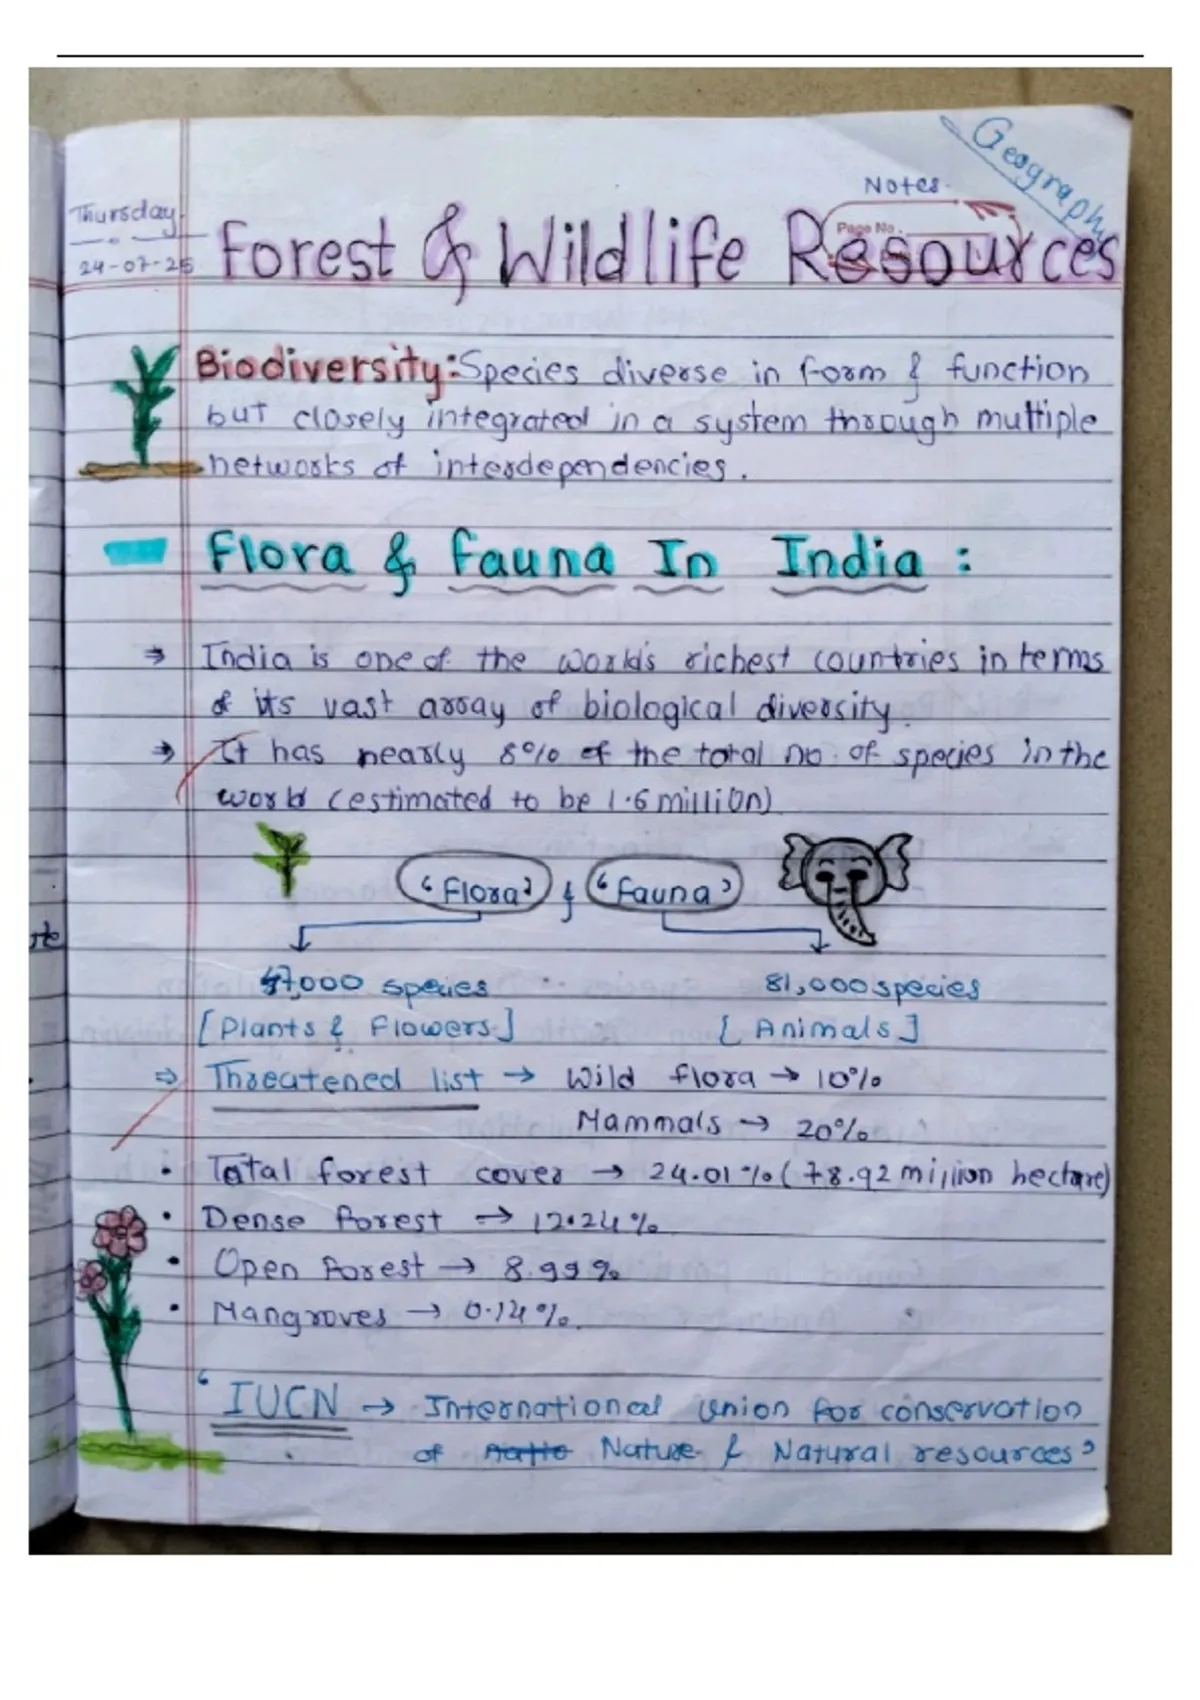 Geography
Notes
Page No.
Thursday
24-07-25
Forest & Wildlife Resources
Biodiversity:- Species diverse in form & function
but closely integrated in a system through multiple
networks of interdependencies.
Flora & Fauna In India :
⇒ India is one of the world's richest countries in terms
of its vast array of biological diversity.
⇒ It has nearly 8% of the total no. of species in the
world (estimated to be 1.6 million)
'Flora' & 'Fauna'
47,000 species 81,000 species
[Plants & Flowers] [Animals]
⇒ Threatened list → Wild flora → 10%
Mammals → 20%
• Total forest cover → 24.01% (78.92 million hectare)
• Dense Forest → 12.24%
• Open Forest → 8.99%
• Mangroves → 0.14%.
'IUCN → International Union for conservation
of Nature & Natural resources'